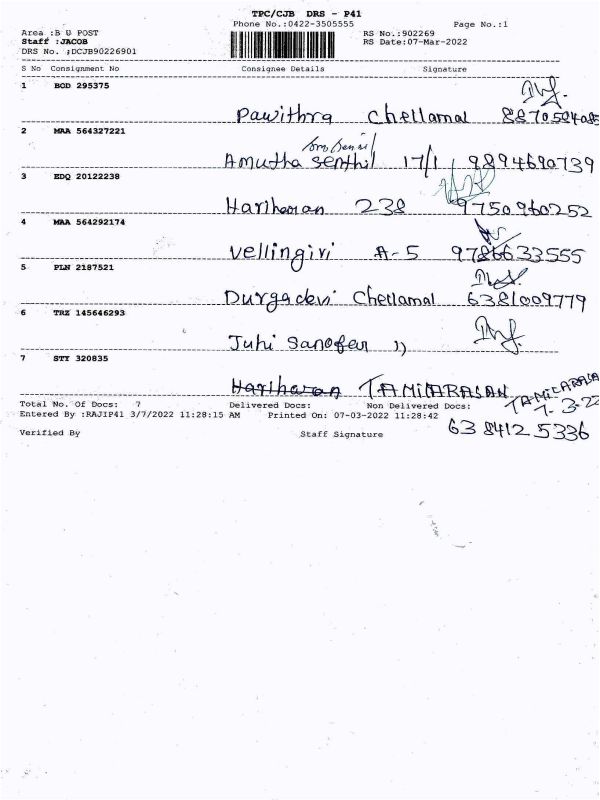 TPC/CJB DRS - P41
Phone No.:0422-3505555 Page No.:1
Area :B U POST RS No.:902269
Staff :JACOB RS Date:07-Mar-2022
DRS No. ;DCJB90226901
S No Consignment No Consignee Details Signature
1 BOD 295375
Pawithra Chellamal
2 MAA 564327221
Amutha Senthil 17/1 9894690739
3 EDQ 20122238
Hariharan 238 9750960252
4 MAA 564292174
Vellingiri A-5 9786633555
5 PLN 2187521
Durgadevi Chellamal 6381009779
6 TRZ 145646293
Juhi Sanofer "
7 STY 320835
Hariharan TAMILARASAN
Total No. Of Docs: 7 Delivered Docs: Non Delivered Docs:
TAMILARASA
7-3-22
Entered By :RAJIP41 3/7/2022 11:28:15 AM Printed On: 07-03-2022 11:28:42
63 8412 5336
Verified By Staff Signature